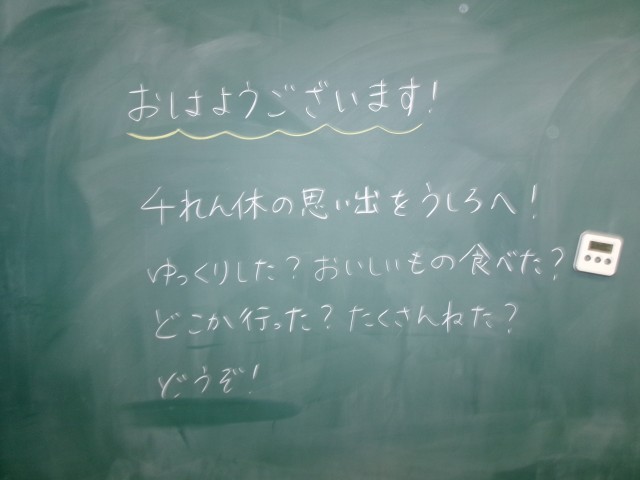 おはようございます!
4れん休の思い出をうしろへ!
ゆっくりした?おいしいもの食べた?
どこか行った?たくさんねた?
どうぞ!